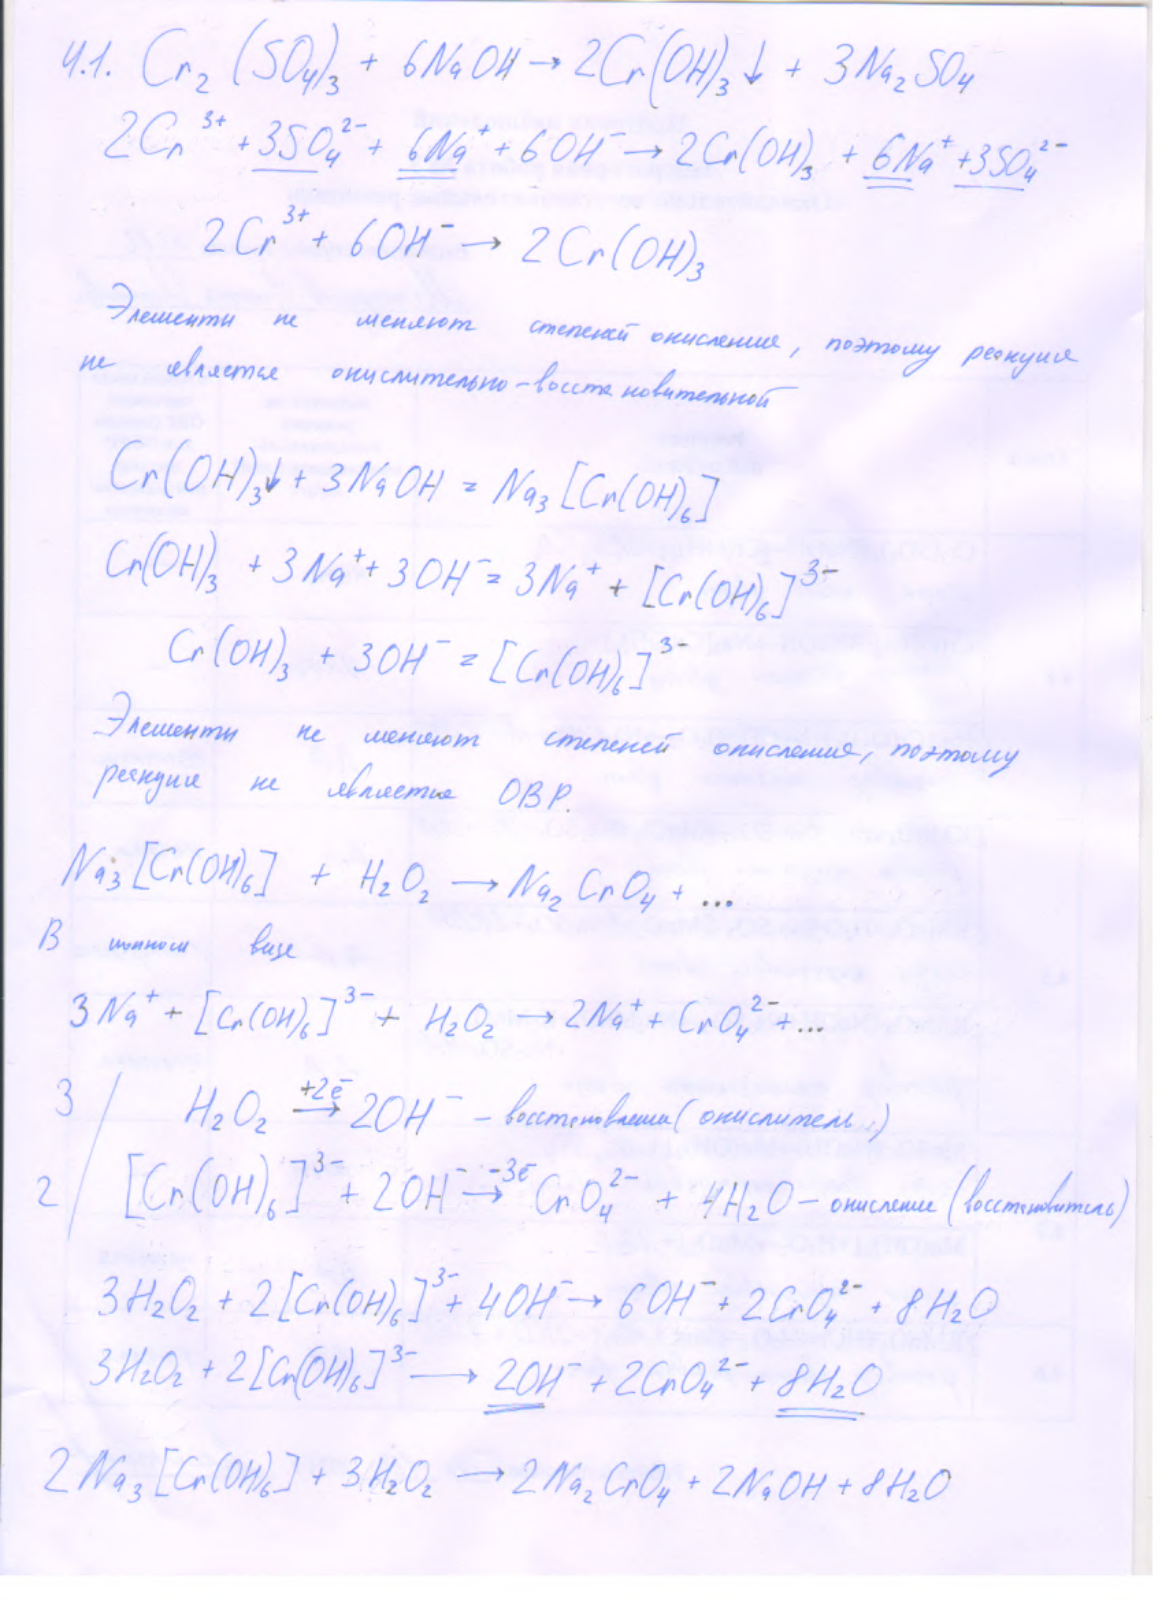 4.1. Cr₂(SO₄)₃ + 6NaOH → 2Cr(OH)₃↓ + 3Na₂SO₄
2Cr³⁺ + 3SO₄²⁻ + 6Na⁺ + 6OH⁻ → 2Cr(OH)₃ + 6Na⁺ + 3SO₄²⁻
2Cr³⁺ + 6OH⁻ → 2Cr(OH)₃
Элементи не меняют степеней окисления, поэтому реакция
не является окислительно-восстановительной
Cr(OH)₃↓ + 3NaOH = Na₃[Cr(OH)₆]
Cr(OH)₃ + 3Na⁺ + 3OH⁻ = 3Na⁺ + [Cr(OH)₆]³⁻
Cr(OH)₃ + 3OH⁻ = [Cr(OH)₆]³⁻
Элементи не меняют степеней окисления, поэтому
реакция не является ОВР.
Na₃[Cr(OH)₆] + H₂O₂ → Na₂CrO₄ + ...
В ионном виде
3Na⁺ + [Cr(OH)₆]³⁻ + H₂O₂ → 2Na⁺ + CrO₄²⁻ + ...
3 / H₂O₂ +2ē → 2OH⁻ – восстановления (окислитель)
2 / [Cr(OH)₆]³⁻ + 2OH⁻ -3ē → CrO₄²⁻ + 4H₂O – окисление (восстановитель)
3H₂O₂ + 2[Cr(OH)₆]³⁻ + 4OH⁻ → 6OH⁻ + 2CrO₄²⁻ + 8H₂O
3H₂O₂ + 2[Cr(OH)₆]³⁻ → 2OH⁻ + 2CrO₄²⁻ + 8H₂O
2Na₃[Cr(OH)₆] + 3H₂O₂ → 2Na₂CrO₄ + 2NaOH + 8H₂O